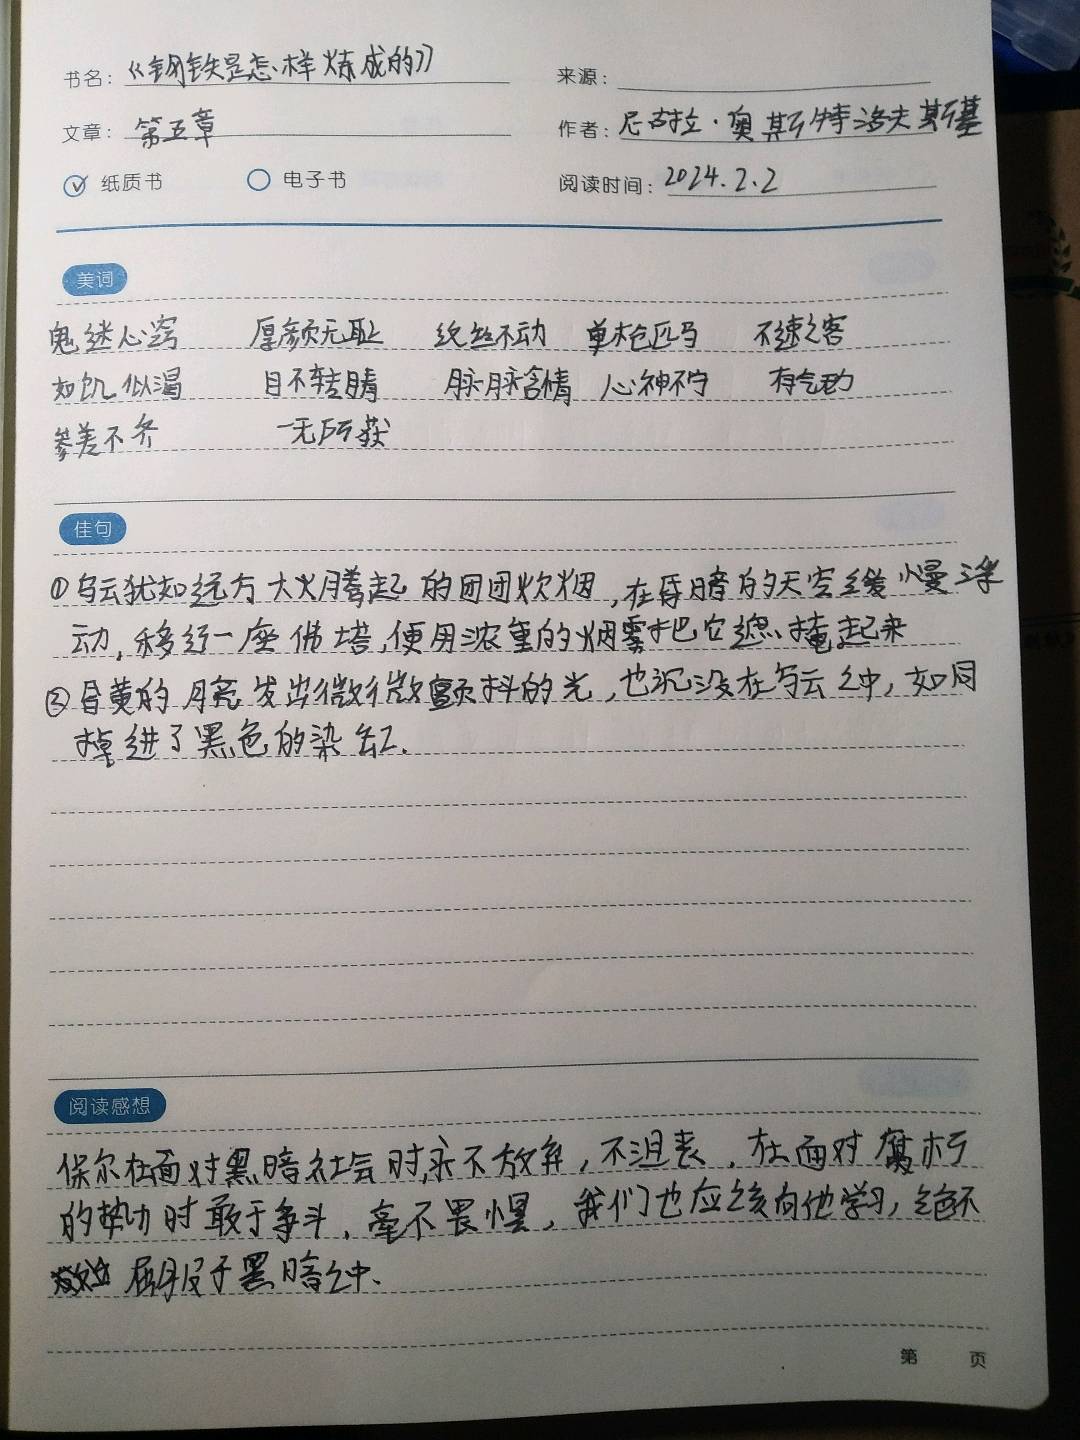 书名：《钢铁是怎样炼成的》
来源：
文章：第五章
作者：尼古拉·奥斯特洛夫斯基
纸质书 电子书
阅读时间：2024.2.2
美词
鬼迷心窍 厚颜无耻 纹丝不动 单枪匹马 不速之客
如饥似渴 目不转睛 脉脉含情 心神不宁 有气无力
参差不齐 一无所获
佳句
①乌云犹如远方大火腾起的团团炊烟，在昏暗的天空缓慢浮
动，移近一座佛塔，便用浓重的烟雾把它遮掩起来
②昏黄的月亮发出微微颤抖的光，也沉没在乌云之中，如同
掉进了黑色的染缸.
阅读感想
保尔在面对黑暗社会时，永不放弃，不沮丧，在面对腐朽
的势力时敢于争斗，毫不畏惧，我们也应该向他学习，绝不
屈服于黑暗之中.
第 页